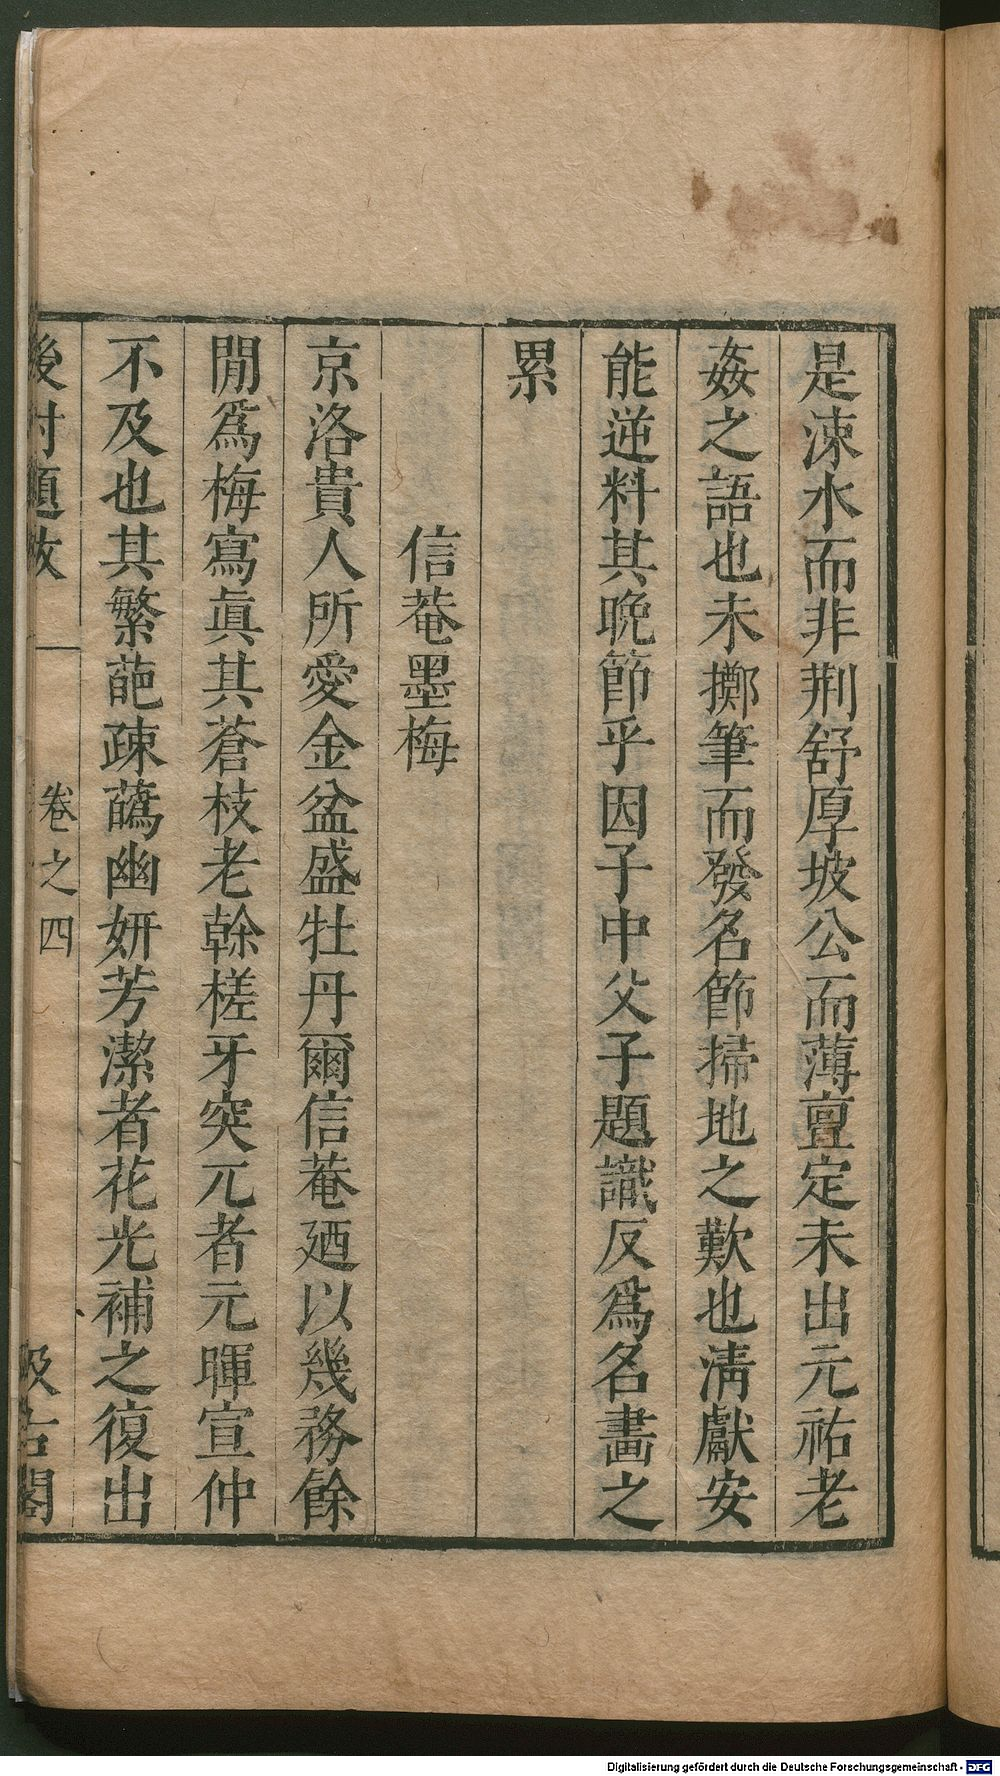 是涑水而非荆舒厚坡公而薄亶定未出元祐老
姦之語也未擲筆而發名節掃地之歎也淸獻安
能逆料其晚節乎因子中父子題識反爲名畵之
累
信菴墨梅
京洛貴人所愛金盆盛牡丹爾信菴廼以幾務餘
閒爲梅寫眞其蒼枝老榦槎牙突兀者元暉宣仲
不及也其繁葩疎蘤幽妍芳潔者花光補之復出
後村題跋
卷之四
汲古閣
Digitalisierung gefördert durch die Deutsche Forschungsgemeinschaft - DFG